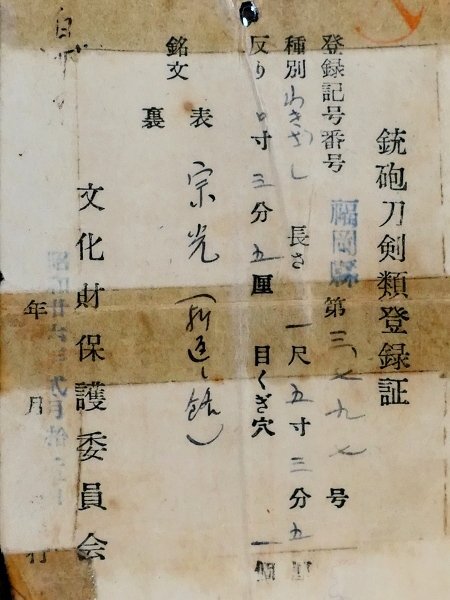 銃砲刀剣類登録証
登録記号番号 福岡縣 第三七九七号
種別 わきざし 長さ 一尺五寸三分五
反り 〇寸三分五厘 目くぎ穴 一個
銘文 表 宗光(折返し銘)
裏
文化財保護委員会
年 月